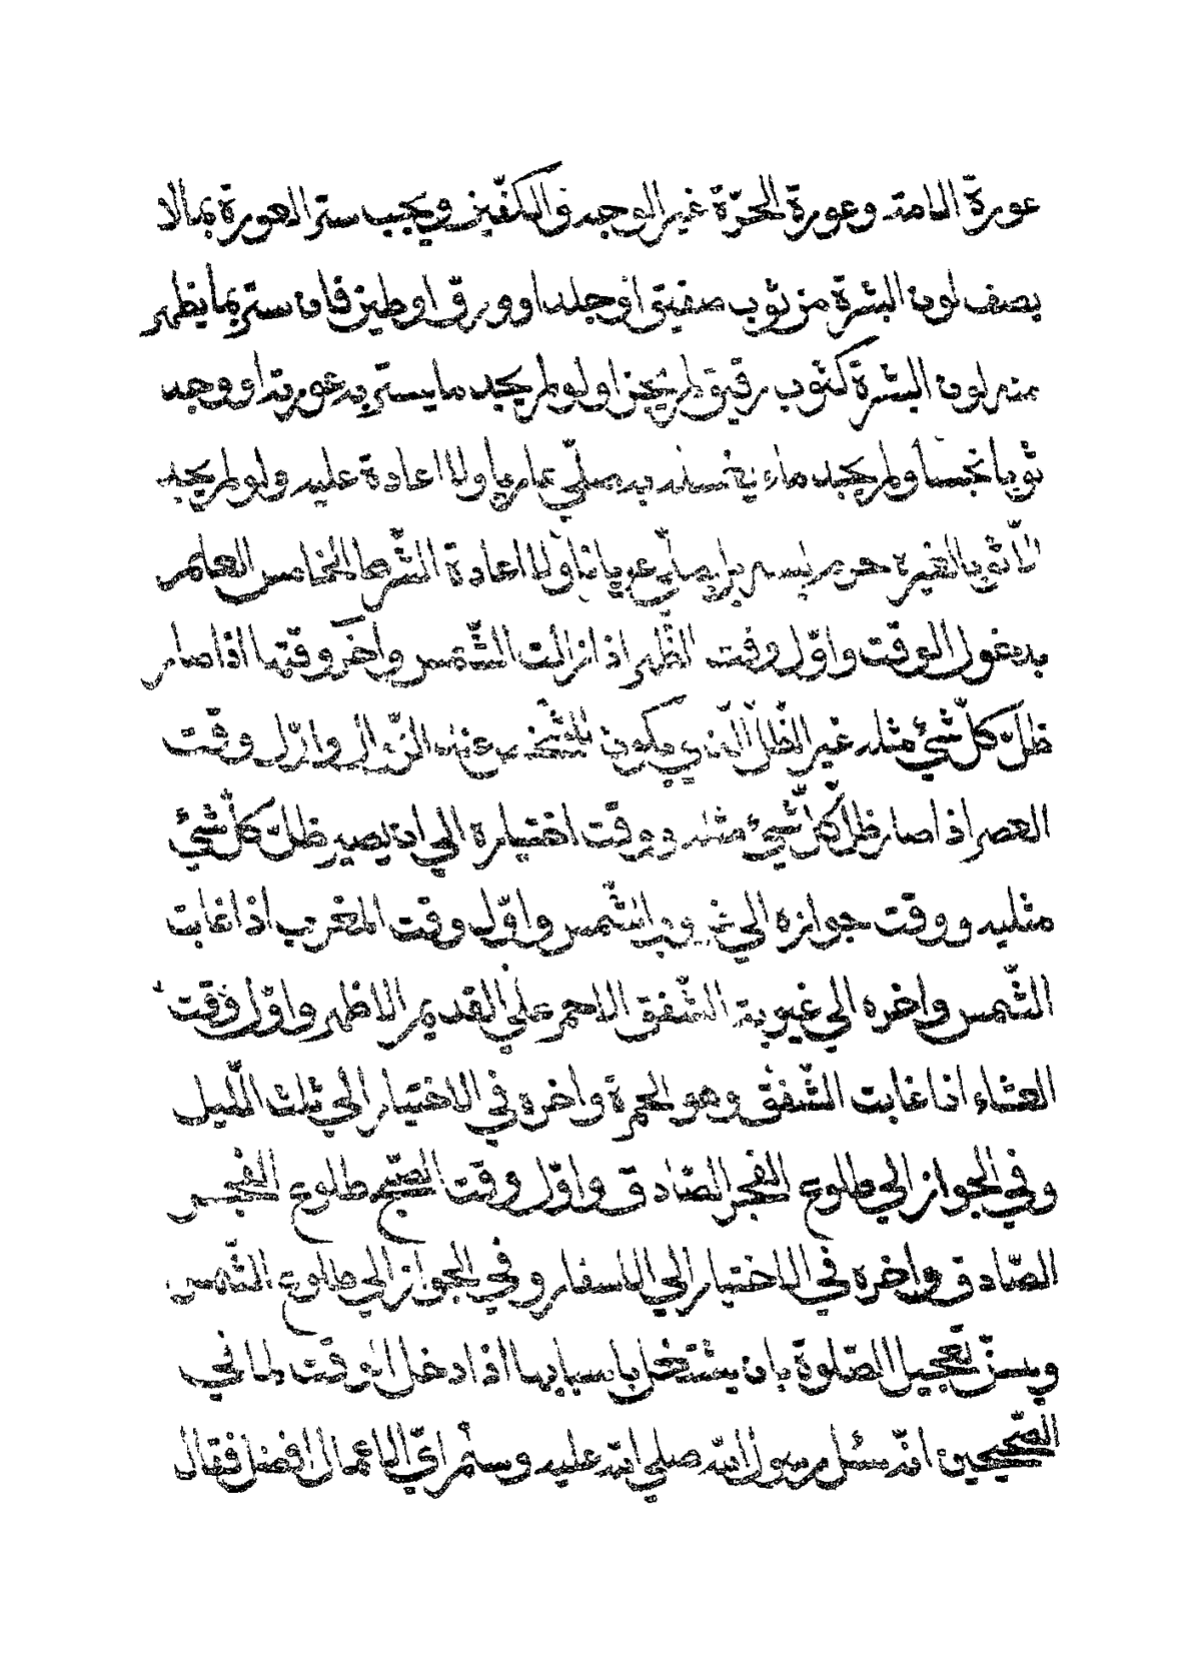 عورة الامة وعورة الحرّة غير الوجه والكفّين ويجب ستر العورة بمالا
يصف لون البشرة من ثوب صفيق اوجلد او ورق اوطين فان ستر بما يظهر
منه لون البشرة كثوب رقيق لم يجز ولو لم يجد ما يستر به عورته او وجد
ثوبا نجسا ولم يجد ماء يغسله به صلّي عاريا ولا اعادة عليه ولو لم يجد
الّا ثوبا لغيره حرم لبسه بل يصلّي عريانا ولا اعادة الشّرط الخامس العلم
بدخول الوقت واوّل وقت الظّهر اذا زالت الشّمس واخر وقتها اذا صار
ظلّ كلّ شئ مثله غير الظلّ الّذي يكون للشّخص عند الزّوال واوّل وقت
العصر اذا صار ظلّ كلّ شئ مثله ووقت اختياره الي ان يصير ظلّ كلّ شئ
مثليه ووقت جوازه الي غروب الشّمس واوّل وقت المغرب اذا غابت
الشّمس واخره الي غيبوبة الشّفق الاحمر علي القديم الاظهر واوّل وقت
العشاء اذا غابت الشّفق وهو الحمرة واخره في الاختيار الي ثلث اللّيل
وفي الجواز الي طلوع الفجر الصّادق واوّل وقت الصّبح طلوع الفجر
الصّادق واخره في الاختيار الي الاسفار وفي الجواز الي طلوع الشّمس
ويسنّ تعجيل الصّلوة بان يشتغل باسبابها اذا دخل الوقت لما في
الصّحيحين انّه سئل رسول الله صلي الله عليه وسلّم ايّ الاعمال افضل فقال